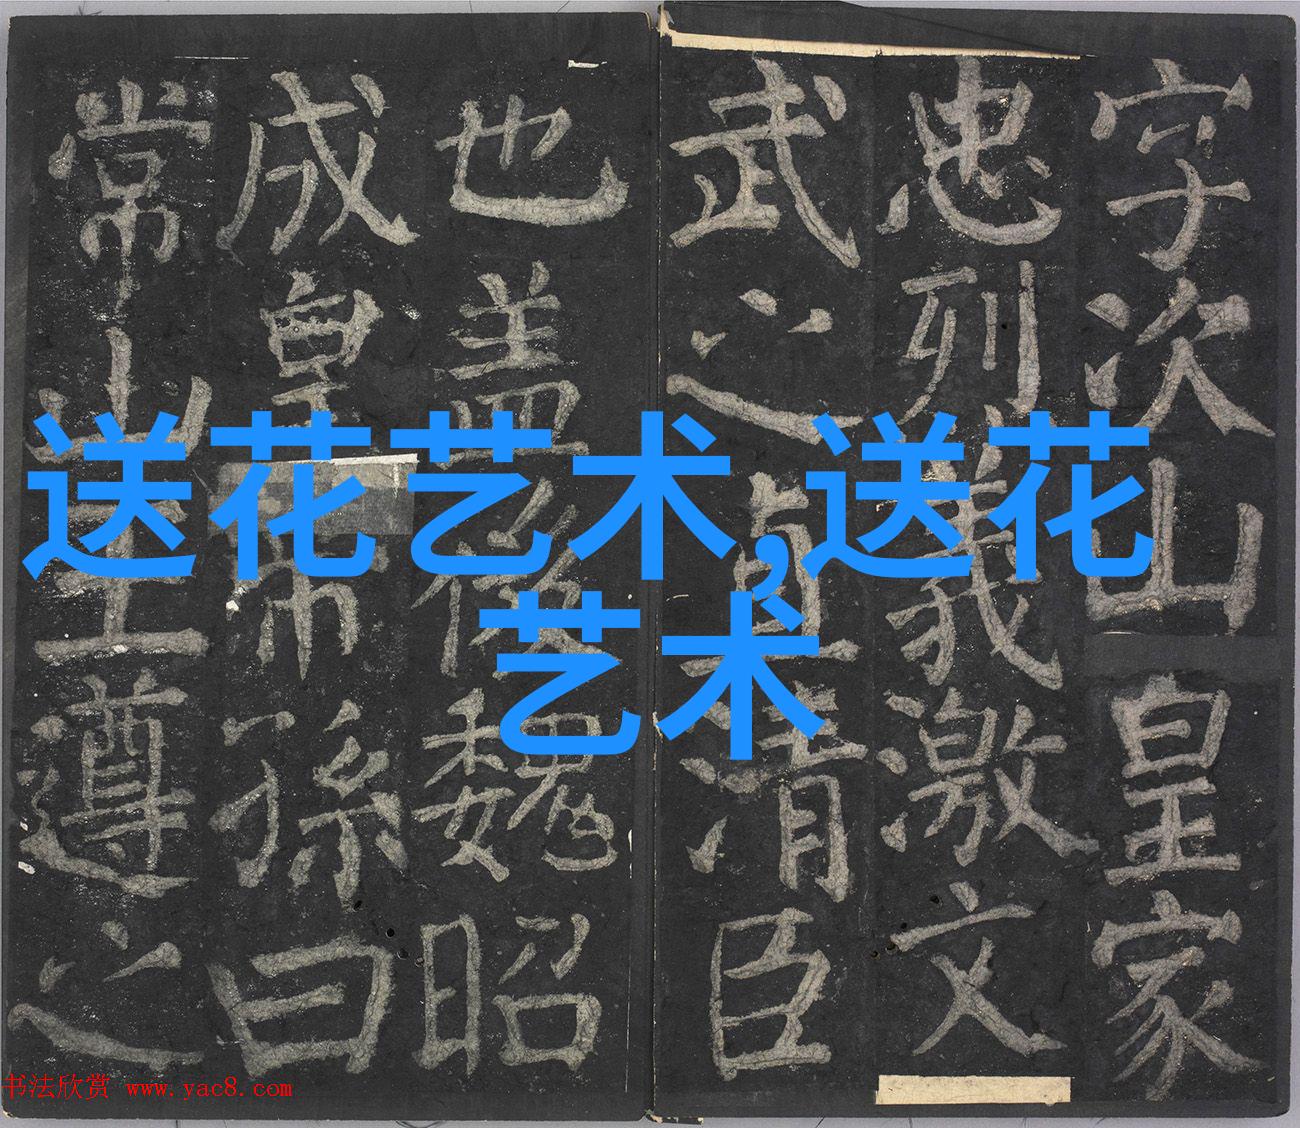 字次山皇家
忠烈義激文
武之直清臣
也盖後魏昭
成皇帝孫曰
常山王遵之
送花艺术,送花
艺术
书法欣赏 www.yac8.com